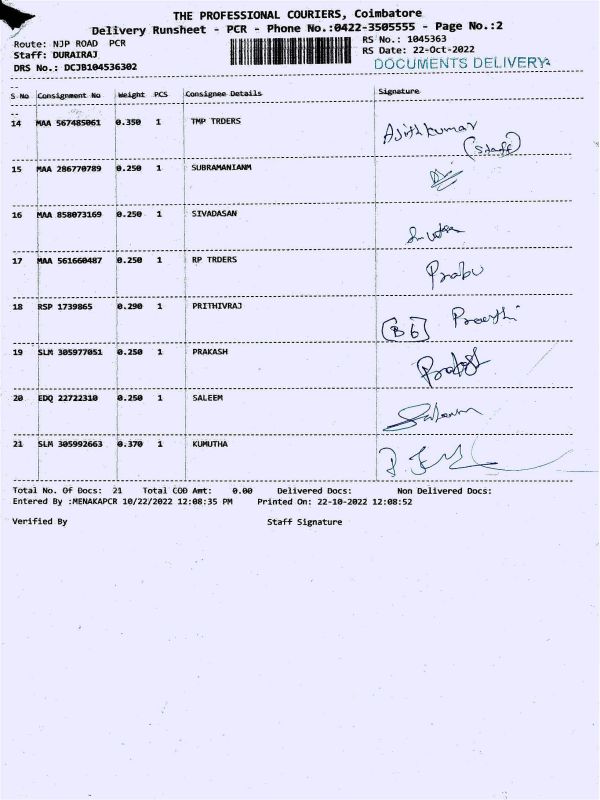 THE PROFESSIONAL COURIERS, Coimbatore
Delivery Runsheet - PCR - Phone No.:0422-3505555 - Page No.:2
Route: NJP ROAD PCR RS No.: 1045363
Staff: DURAIRAJ RS Date: 22-Oct-2022
DRS No.: DCJB104536302 DOCUMENTS DELIVERY
S No Consignment No Weight PCS Consignee Details Signature
14 MAA 567485061 0.350 1 TMP TRDERS
Ajithkumar
(Staff)
15 MAA 286770789 0.250 1 SUBRAMANIANM
16 MAA 858073169 0.250 1 SIVADASAN
17 MAA 561660487 0.250 1 RP TRDERS
Prabu
18 RSP 1739865 0.290 1 PRITHIVRAJ
[B6] Preethi
19 SLM 305977051 0.250 1 PRAKASH
20 EDQ 22722310 0.250 1 SALEEM
21 SLM 305992663 0.370 1 KUMUTHA
Total No. Of Docs: 21 Total COD Amt: 0.00 Delivered Docs: Non Delivered Docs:
Entered By :MENAKAPCR 10/22/2022 12:08:35 PM Printed On: 22-10-2022 12:08:52
Verified By Staff Signature